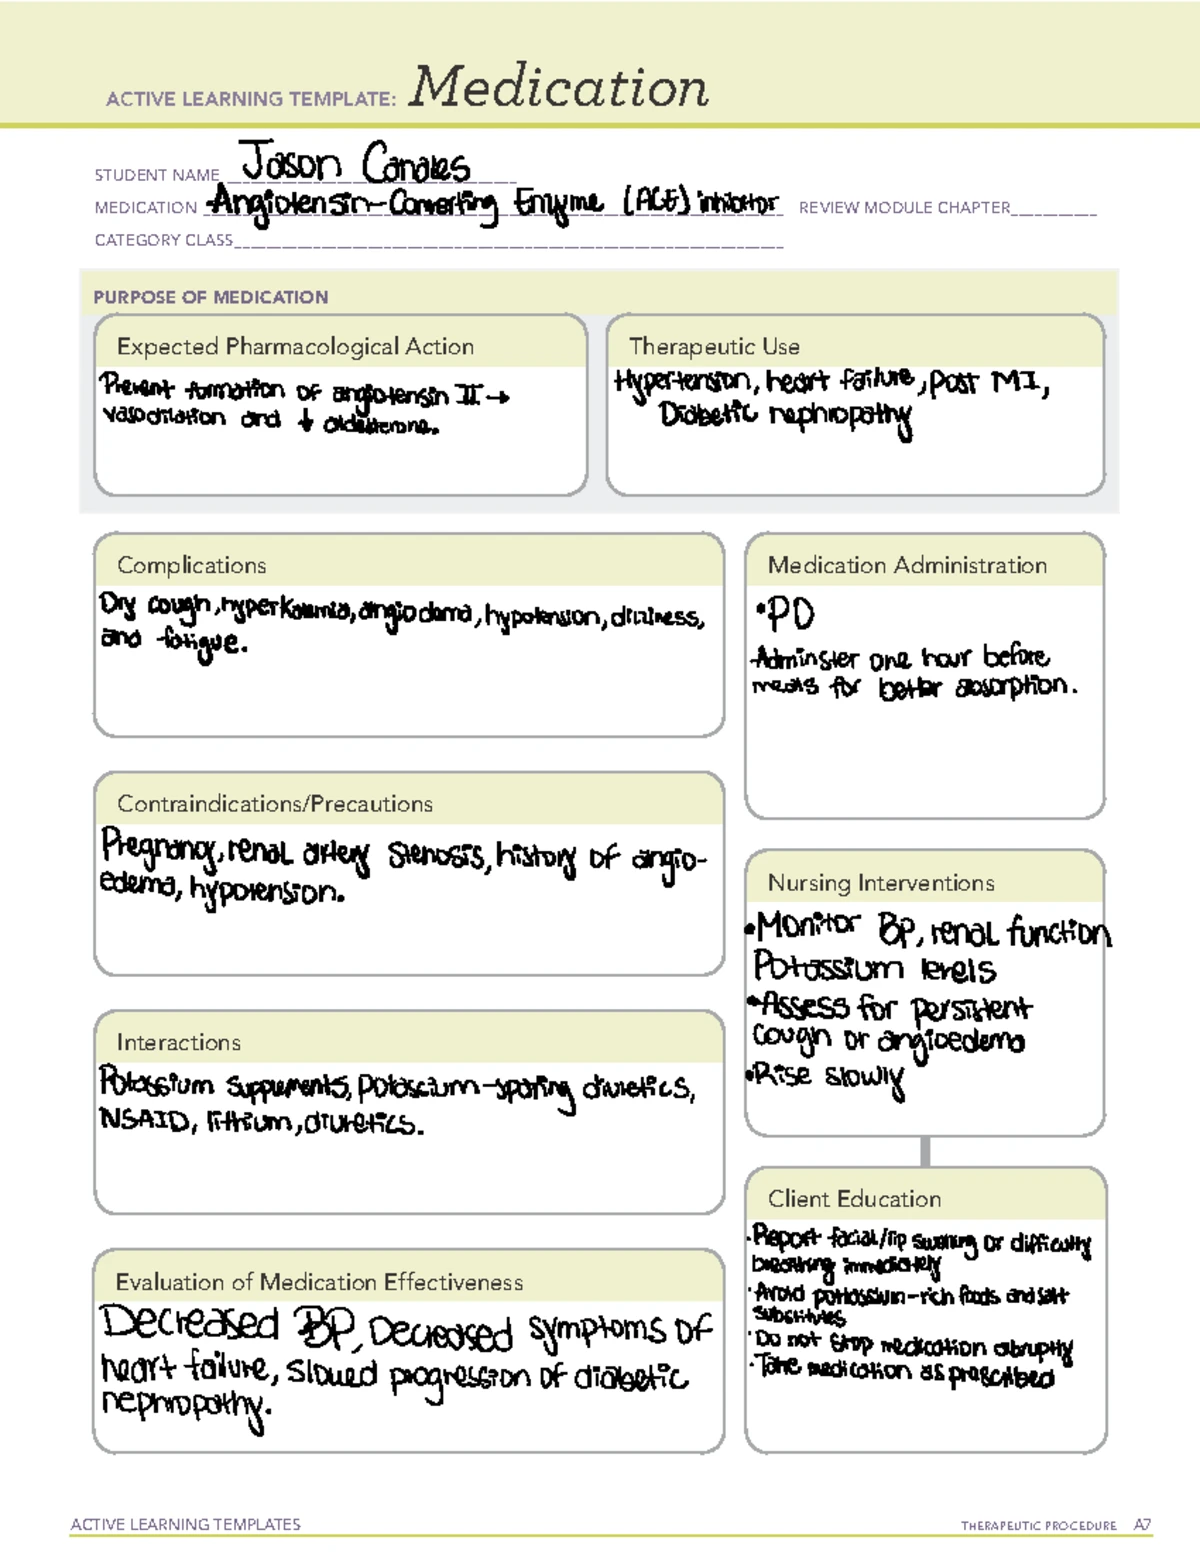 ACTIVE LEARNING TEMPLATE: Medication
STUDENT NAME Jason Canales
MEDICATION Angiotensin-Converting Enzyme (ACE) inhibitor REVIEW MODULE CHAPTER
CATEGORY CLASS
PURPOSE OF MEDICATION
Expected Pharmacological Action
Prevent formation of angiotensin II →
vasodilation and ↓ aldosterone.
Therapeutic Use
Hypertension, heart failure, post MI,
Diabetic nephropathy
Complications
Dry cough, hyperkalemia, angiodema, hypotension, dizziness,
and fatigue.
Medication Administration
•PO
-Adminster one hour before
meals for better absorption.
Contraindications/Precautions
Pregnancy, renal artery stenosis, history of angio-
edema, hypotension.
Nursing Interventions
•Monitor BP, renal function
Potassium levels
•Assess for persistent
cough or angioedema
•Rise slowly
Interactions
Potassium supplements, potassium-sparing diuretics,
NSAID, lithium, diuretics.
Client Education
·Report facial/lip swelling or difficulty
breathing immediately
·Avoid potassium-rich foods and salt
substitutes
·Do not stop medication abruptly
·Take medication as prescribed
Evaluation of Medication Effectiveness
Decreased BP, Decreased symptoms of
heart failure, slowed progression of diabetic
nephropathy.
ACTIVE LEARNING TEMPLATES THERAPEUTIC PROCEDURE A7